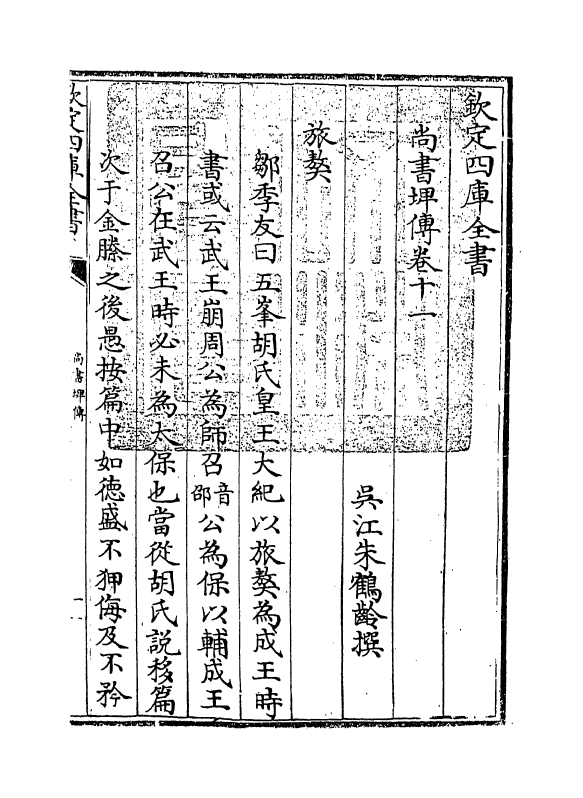 欽定四庫全書
尚書埤傳卷十一
吳江朱鶴齡撰
旅獒
鄒季友曰五峯胡氏皇王大紀以旅獒為成王時
書或云武王崩周公為師召音邵公為保以輔成王
召公在武王時必未為太保也當從胡氏說移篇
次于金縢之後愚按篇中如德盛不狎侮及不矜
欽定四庫全書
尚書埤傳